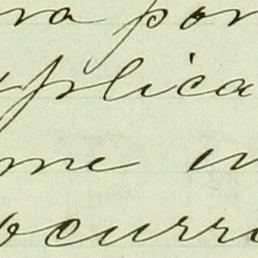 ra por
plica
me en
ocurri